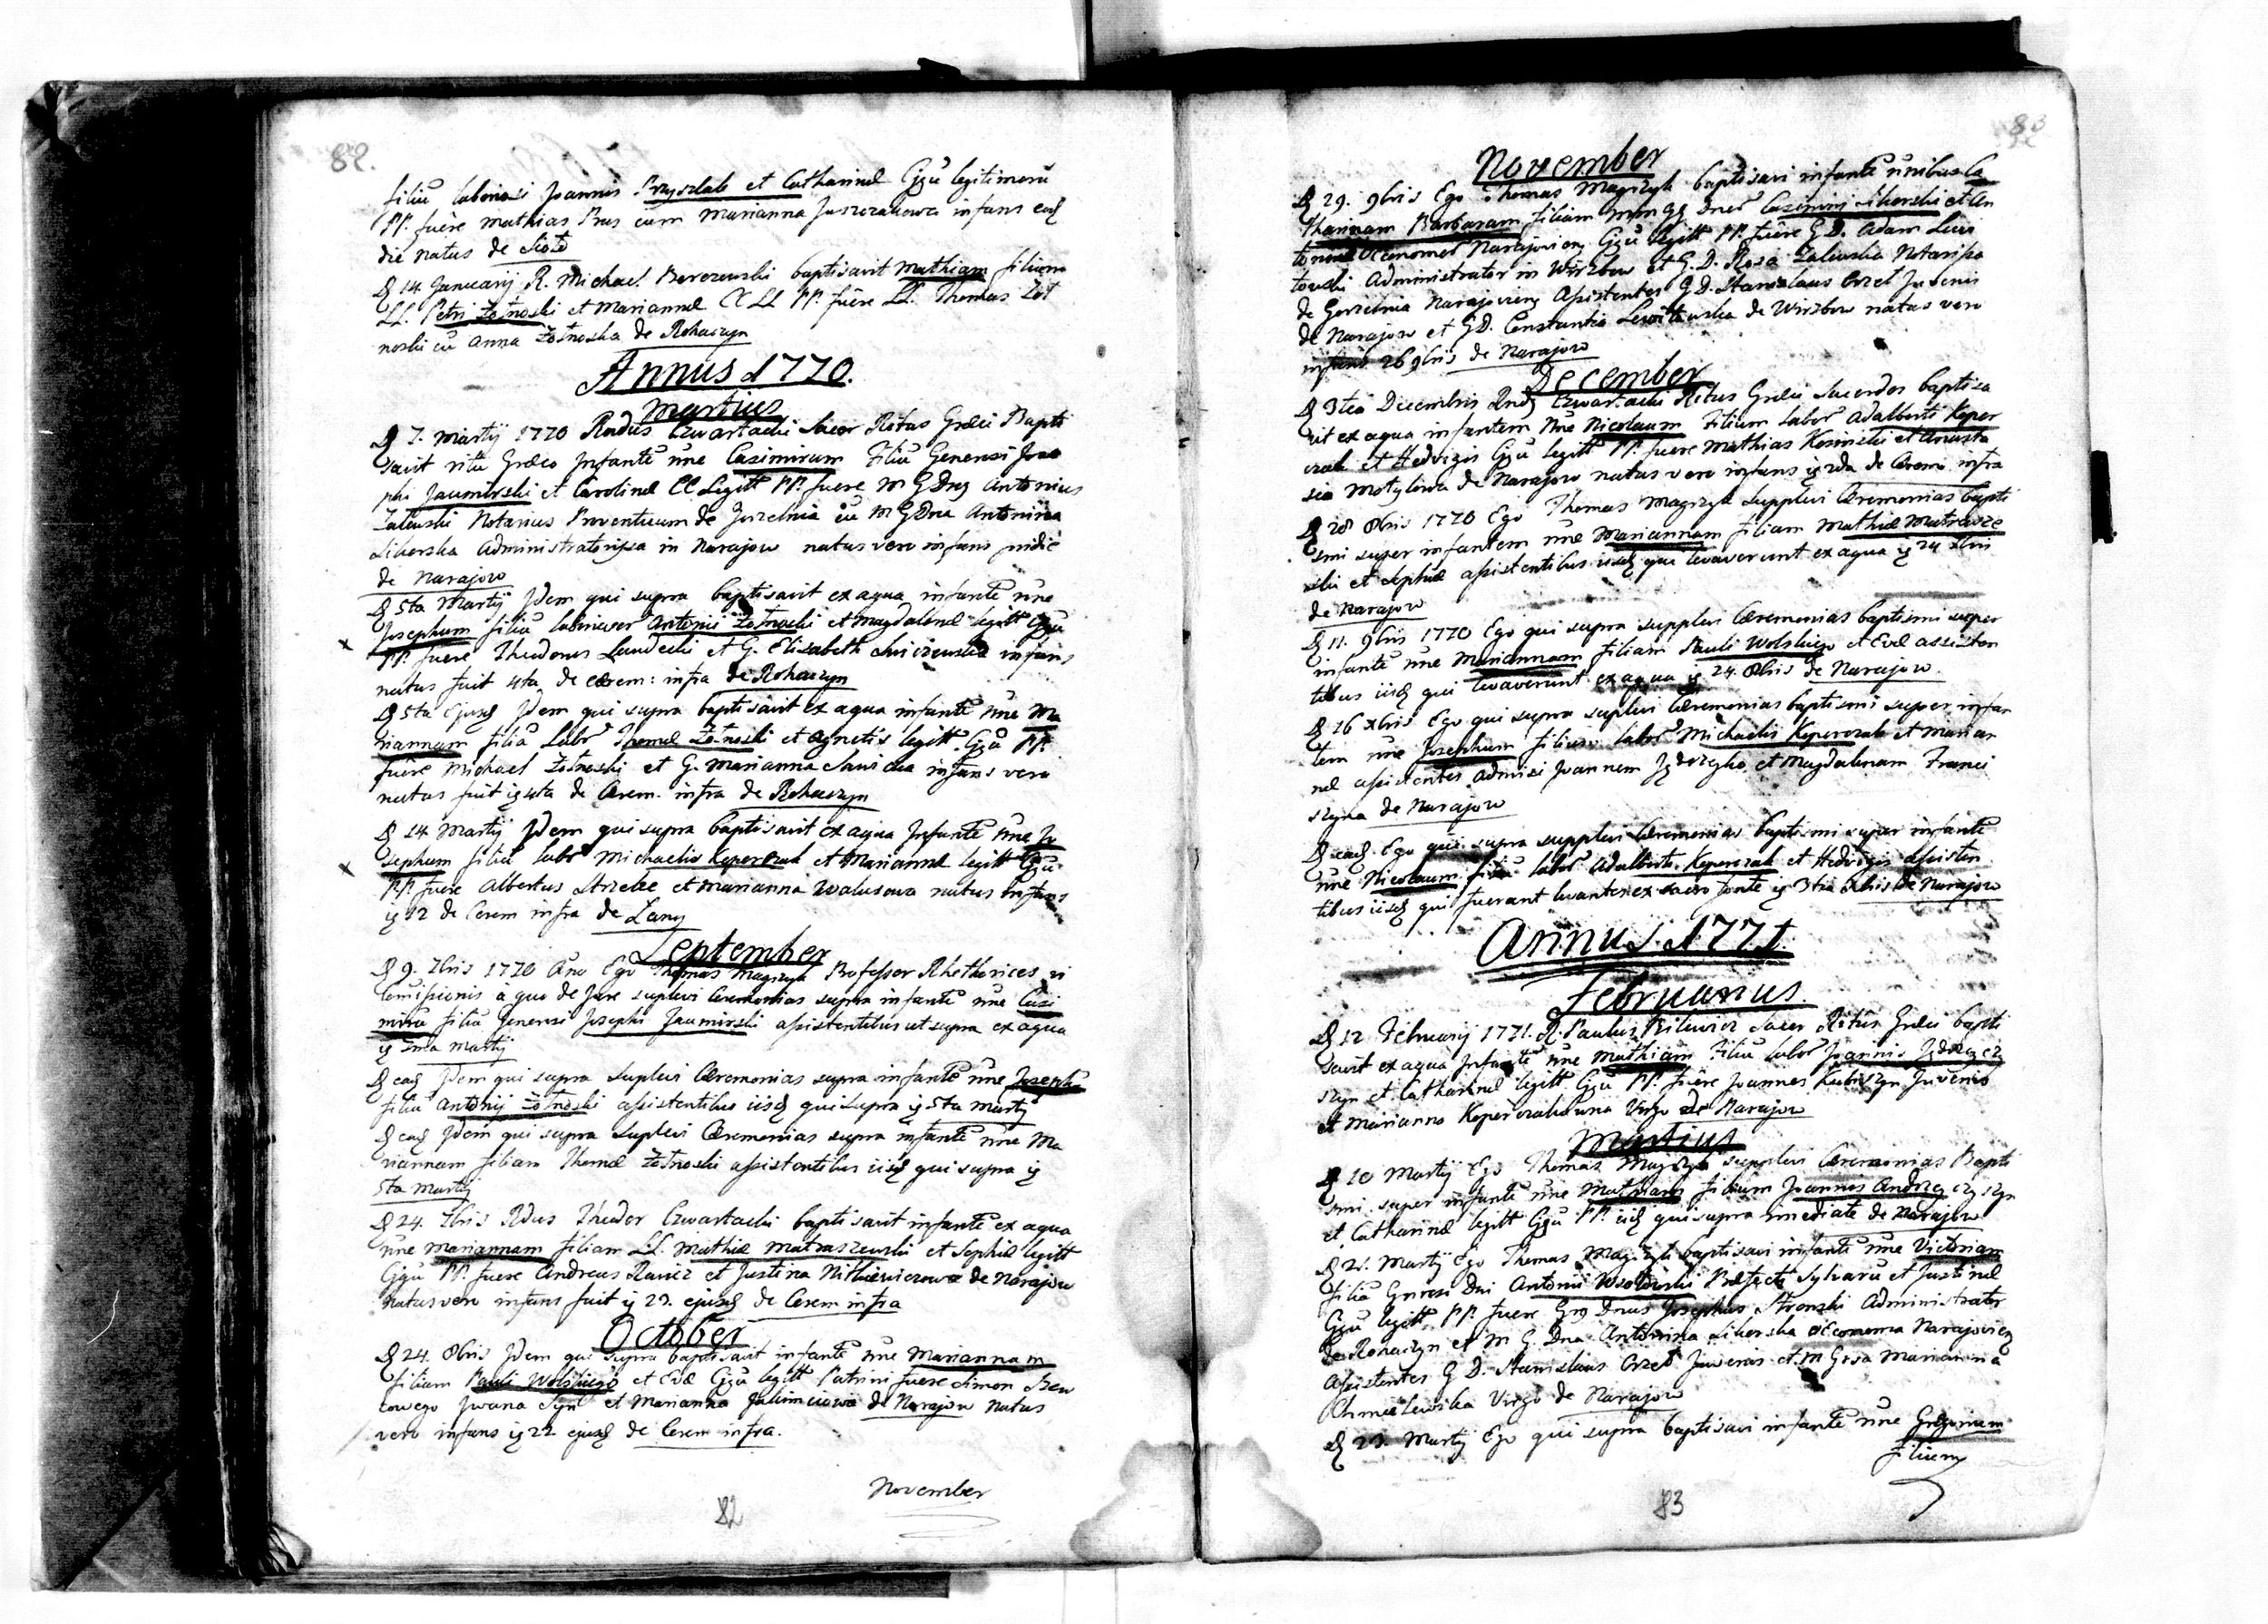 82.
filiu laboriosi Joannis Przyszlak et Catharinæ Cjgu legitimoru
PP. fuêre Mathias Bus cum Marianna Juszczakowa infans eâd
die natus de Sioło
D 14 Januarij R. Michael Berezowski baptisavit Mathiam filium
LL. Petri Żołnoski et Mariannæ CC LL PP. fuêre LL. Thomas Żoł
noski cu Anna Żołnoska de Rohaczyn
Annus 1770.
Martius
D 7. Martij 1770 Rndus Czwartacki Sacer Ritus Græci Bapti
savit ritu Græco Infantê nne Casimirum Filiu Generosi Jose
phi Jaumirski et Carolinæ CC Legitt PP. fuere M G Dng Antonius
Zalewski Notarius Proventuum de Gorzelnia cu M G Dna Antonina
Sikorska Administratorissa in Narajow natus vero infans pridie
de Narajow
D 5ta Martij Idem qui supra baptisavit ex aqua infantê nne
Josephum filiu laboriosor Antonii Żołnoski et Magdalenæ legitt Cjgu
PP. fuere Theodorus Landecki et G. Elisabeth infans
natus fuit 4ta de Cærem: infra de Rohaczyn
D 5ta Ejusd Idem qui supra baptisavit ex aqua infantê nne Ma
riannam filiâ Labor Thomæ Żołnoski et Agnetis legitt Cjgu PP.
fuêre Michael Żołnoski et G. Marianna Sawicka infans vero
natus fuit ig 4ta de Cærem. infra de Rohaczyn
D 14 Martij Idem qui supra baptisavit ex aqua Infantê nne Jo
sephum filiu labor Michaelis Keperczak et Mariannæ legitt Cjgu
PP. fuere Albertus Strzelec et Marianna Walusowa natus Infans
ig 12 de Cerem infra de Lany
September
D 9. 7bris 1770 Ano Ego Thomas Magrzyk Professor Rhethorices vi
Comissionis à quo de Jure suplevi Ceremonias supra infantê nne Casi
miru filiu Generosi Josephi Jaumirski assistentibus ut supra ex aqua
ig 7ma Martij
D ead Idem qui supra suplevi Cæremonias supra infantê nne Josephu
filiu Antonij Żołnoski assistentibus iisd qui supra ig 5ta Martij
D ead Idem qui supra suplevi Cæremonias supra infantê nne Ma
riannam filiam Thomæ Żołnoski assistentibus iisd qui supra ig
5ta Martij
D 24. 7bris Rdus Theodor Czwartacki baptisavit infantê ex aqua
nne Mariannam filiam LL. Mathiæ Matraszewski et Sophiæ legitt
Cjgu PP. fuere Andreas Rawicz et Justina Nitkiewiczowa de Narajow
natus vero infans fuit ig 23. ejusd de Cerem infra
October
D 24. 8bris Idem qui supra baptisavit infantê nne Mariannam
filiam Pauli Wolskiego et Evæ Cjgu legitt Patrini fuere Simon Szew
cowego Iwana Syn et Marianna Jakimciowa de Narajow natus
vero infans ig 22 ejusd de Cerem infra.
November
82
83
November
D 29. 9bris Ego Thomas Magrzyk baptisavi infantê nnibus Ca
tharinam Barbaram filiam MM GG Dnor Casimiri Sikorski et An
toninæ Œconomor Narajovieng Cjgu legitt PP. fuêre G.D. Adam Lewi
towski Administrator in Wirzbow et G. D. Rosa Zalewska Notarissa
de Gorzelnia Narajovieng Assistentes G D. Stanislaus Orzeł Juvenis
de Narajow et GD. Constantia Lewitowska de Wirzbow natus vero
infans 26 9bris de Narajow
December
D 3tia Decembris Rndg Czwartacki Ritus Græci Sacerdos baptisa
vit ex aqua infantem nne Nicolaum Filium Labor Adalberti Keper
czak et Hedvigis Cjgu legitt PP. fuere Mathias Kosinski et Anasta
sia Motylowa de Narajow natus vero infans ig 2da de Cærem infra
D 28 8bris 1770 Ego Thomas Magrzyk Supplevi Cæremonias bapti
smi super infantem nne Mariannam filiam Mathiæ Matrasze
ski et Sophiæ assistentibus iisd qui levaverunt ex aqua ig 24 7bris
de Narajow
D 11. 9bris 1770 Ego qui supra supplevi Cæremonias baptismi super
infantê nne Mariannam filiam Pauli Wolskiego et Evæ assisten
tibus iisd qui levaverunt ex aqua ig 24. 8bris de Narajow.
D 16 xbris Ego qui supra suplevi Cæremonias baptismi super infan
tem nne Josephum filium labor Michaelis Keperczak et Marian
næ assistentes admisi Joannem Jędrzeyko et Magdalenam Franci
szyna de Narajow
D ead Ego qui supra supplevi Cæremonias baptismi super infantê
nne Nicolaum filiu labor Adalberti Keperczak et Hedvigis assisten
tibus iisd qui fuerant levantes ex sacro fonte ig 3tia xbris de Narajow
Annus. 1771.
Februarius.
D 12 Februarij 1771. R. Paulus Biliewicz Sacer Ritûs Græci bapti
savit ex aqua Infantê nne Mathiam Filiu labor Joannis Jędrzey
szyn et Catharinæ legitt. Cjgu PP. fuêre Joannes Kubiszyn Juvenis
et Marianna Keperczakowna Virgo de Narajow
Martius
D 10 Martij Ego Thomas Magrzyk supplevi Cæremonias Bapti
smi super infantê nne Mathiam filium Joannis Andrzeyczyszyn
et Catharinæ legitt Cjgu PP. iisd qui supra imediate de Narajow
D 21. Martij Ego Thomas Magrzyk baptisavi infantê nne Victoriam
filiâ Gnrosi Dni Antonii Wsołowski Præfecti Sylvaru et Justinæ
Cjgu legitt. PP. fuere Grg Dnus Josephus Stronski Administrator
de Rohaczyn et M G. Dna Antonina Sikorska Œconoma Narajovieng
Assistentes G D. Stanislaus Orzeł Juvenis et M Grsa Marianna
Chmielewska Virgo de Narajow
D 23. Martij Ego qui supra baptisavi infantê nne Gregorium
Filium
83